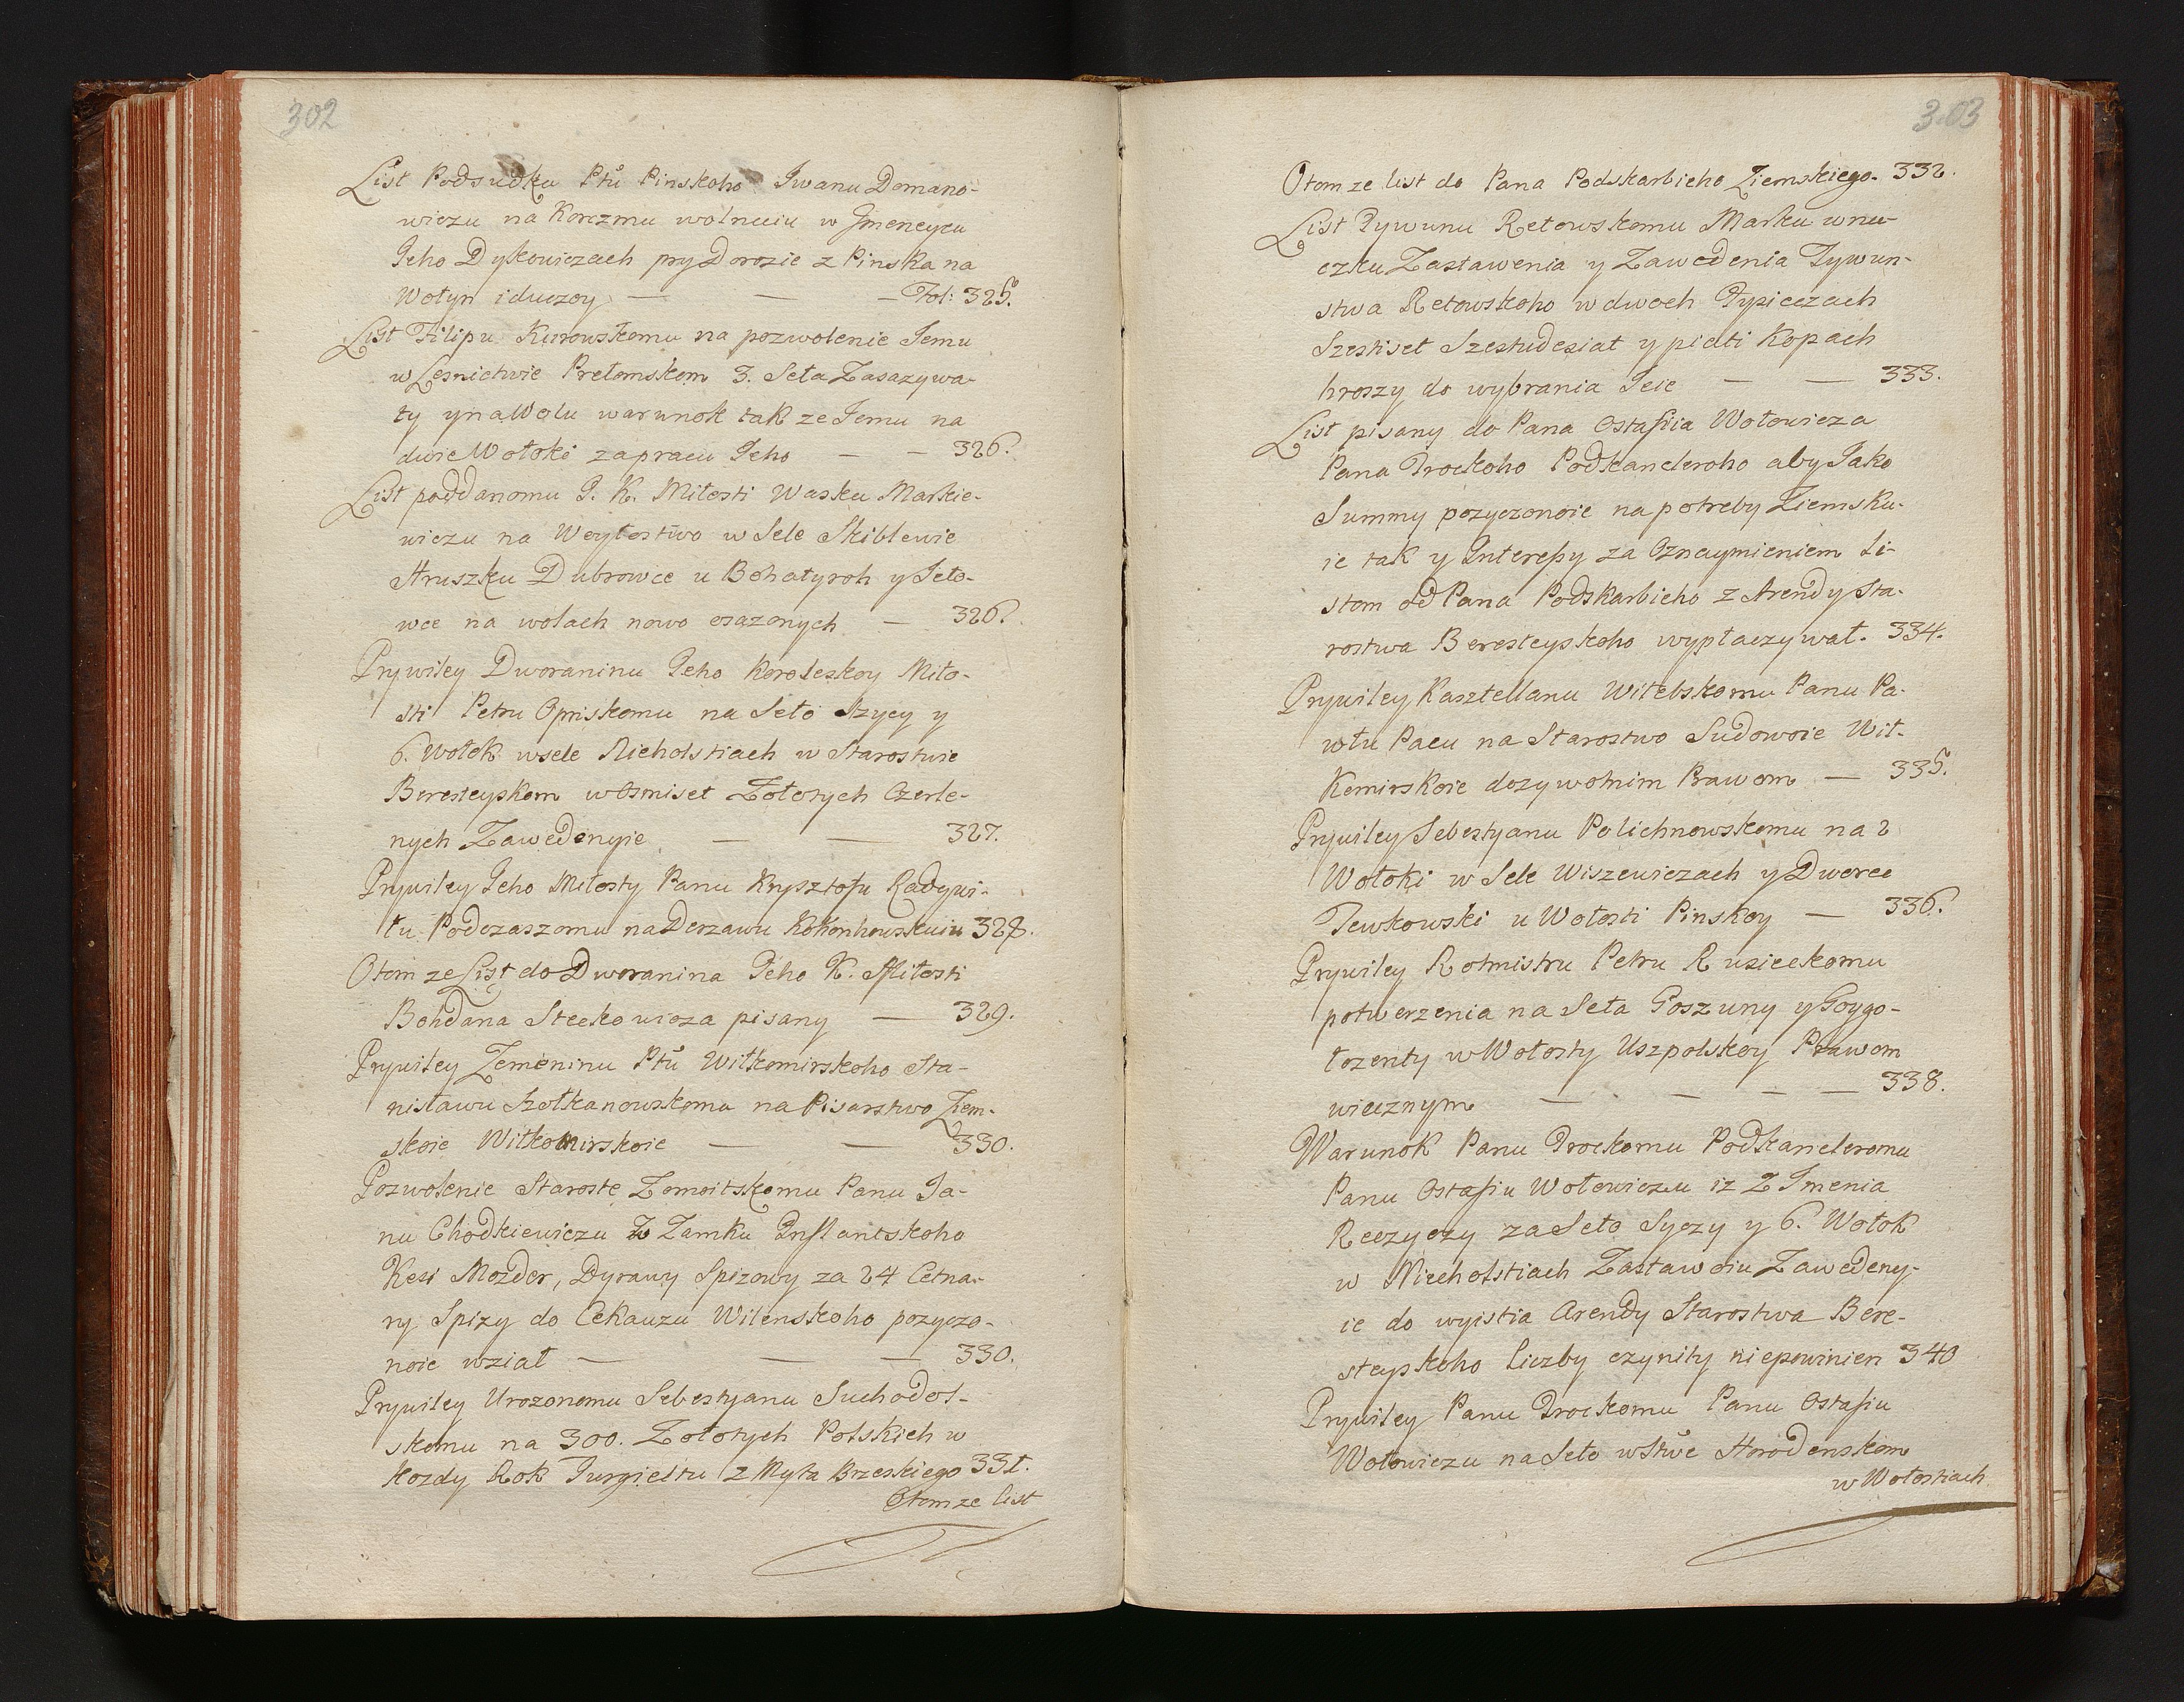 302
List Podsudku Ptů Pinskoho Iwanu Domano-
wiczu na Korczmu wolnuiu w Jmeneycu
Jeho Dykowiczach pry Dorozie z Pinska na
Wołyn iduczoy — — — Fol: 325.
List Filipu Kurowskomu na pozwolenie Jemu
w Lesnictwie Prełomskom 3. Seła Zasazywa-
ty y na Wolu warunok tak ze Jemu na
dwie Wołoki za pracu Jeho — — 326.
List poddanomu J. K. Miłosti Wasku Markie-
wiczu na Woytostwo w Sele Skiblewie
Hruszku Dubrowce u Bohatyroh y Seło-
wce na wolach nowo osazonych — 326.
Prywiley Dworaninu Jeho Koroleskoy Miło-
sti Petru Opriskomu na Seło Szycy y
6. Wołok w sele Nieholstiach w Starostwie
Beresteyskom w Osmiset Zołotych Czerle-
nych Zawedenyie — — 327.
Prywiley Jeho Miłosty Panu Krysztofu Radywi-
łu Podczaszomu na Derzawu Kokonhowskuiu 328.
Otom ze List do Dworanina Jeho K. Miłosti
Bohdana Steckowicza pisany — 329.
Prywiley Zemeninu Ptů Wiłkomirskoho Sta-
nisławu Szołkanowskomu na Pisarstwo Ziem-
skoie Wiłkomirskoie — — 330.
Pozwolenie Staroste Zomoitskomu Panu Ja-
nu Chodkiewiczu Zo Zamku Inflantskoho
Kesi Mozder, Dyrawy Spizowy za 24 Cetna-
ry Spizy do Cekauzu Wilenskoho pozyczo-
noie wział — — — 330.
Prywiley Urozonomu Sebestyanu Suchodol-
skomu na 300. Zołotych Polskich w
Kozdy Rok Jurgieltu z Myta Brzeskiego 331.
Otom ze list
303
Otom ze list do Pana Podskarbieho Ziemskiego. 332.
List Tywunu Retowskomu Marku wnu-
czku Zastawenia y Zawedenia Tywun-
stwa Retowskoho w dwoch Tysiczach
Szestiset Szestidesiat y piati Kopach
hroszy do wybrania Seie — — 333.
List pisany do Pana Ostafiia Wołowicza
Pana Trockoho Podkancleroho aby Jako
Summy pozyczonoie na potreby Ziemsku-
ie tak y Interessy za Oznaymieniem Li-
stom od Pana Podskarbieho z Arendy Sta-
rostwa Beresteyskoho wypłaczywał. 334.
Prywiley Kasztellanu Witebskomu Panu Pa-
włu Pacu na Starostwo Sudowoie Wił-
Komirskoie dozywotnim Prawom — 335.
Prywiley Sebestyanu Polichnowskomu na 2
Wołoki w Sele Wiszewiczach y Dworce
Tewkowski u Wołosti Pinskoy — 336.
Prywiley Rotmistru Petru Rusieckomu
potwerzenia na Seła Poszuny y Goygo-
łozenty w Wołosty Uszpolskoy Prawom
wiecznym — — — — 338.
Warunok Panu Trockomu Podkancleromu
Panu Ostafiu Wołowiczu iz Z Imenia
Reczyczy za Seło Syczy y 6. Wołok
w Nieeholstiach Zastawoiu Zawedeny-
ie do wyistia Arendy Starostwa Bere-
steyskoho Liczby czynity niepowinien 340
Prywiley Panu Trockomu Panu Ostafiu
Wołowiczu na Seło w Stwě Horodenskom
w Wołostiach